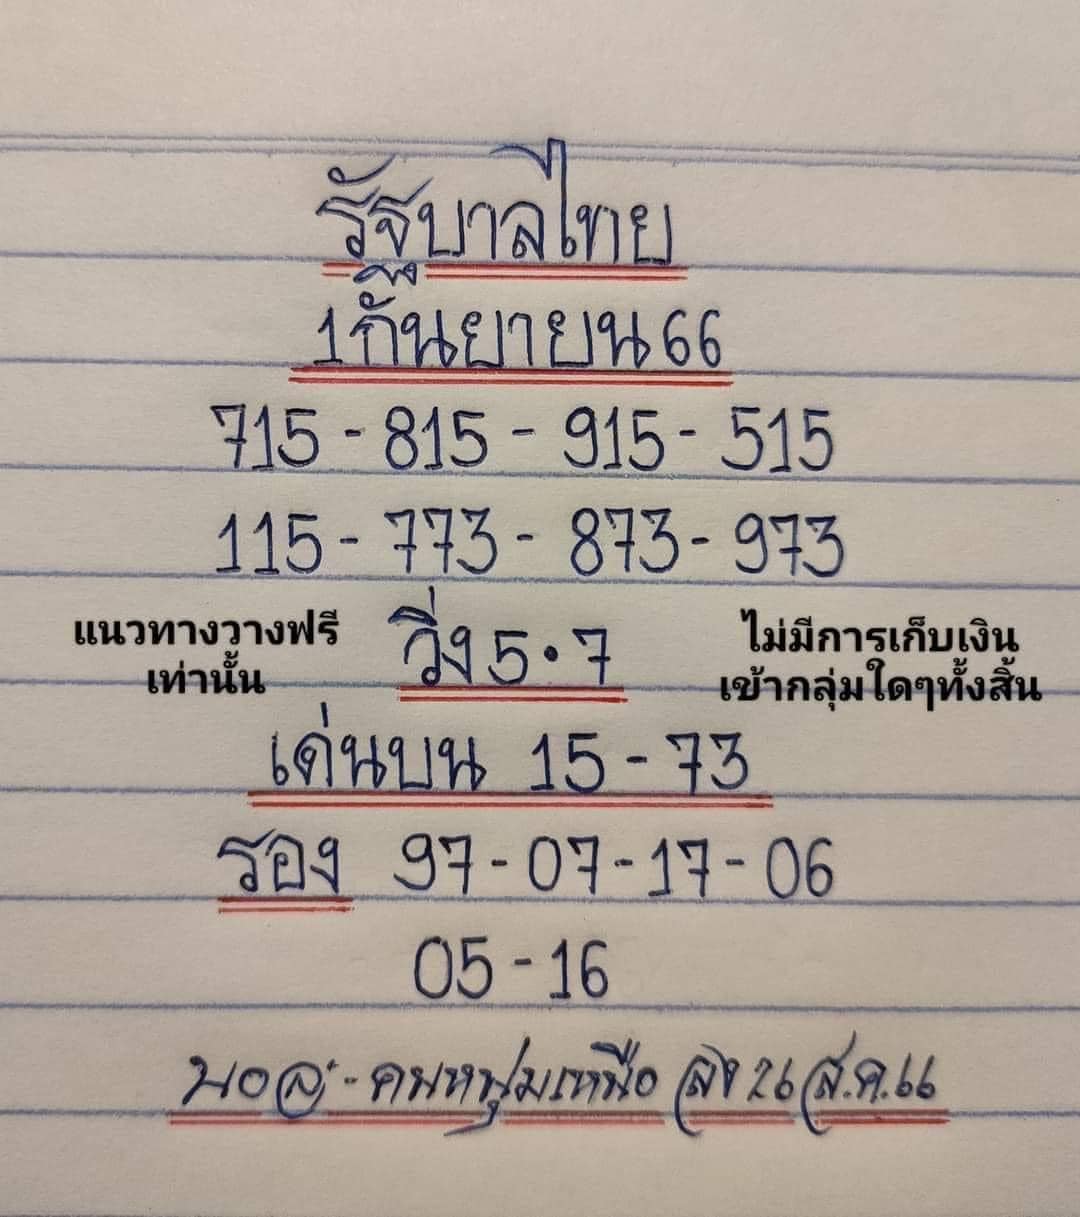 รัฐบาลไทย
1กันยายน66
715 - 815 - 915 - 515
115 - 773 - 873 - 973
แนวทางวางฟรี
เท่านั้น
วิ่ง5•7
ไม่มีการเก็บเงิน
เข้ากลุ่มใดๆทั้งสิ้น
เด่นบน 15 - 73
รอง 97 - 07 - 17 - 06
05 - 16
- คนหนุ่มเหนือ ลง 26 ส.ค.66